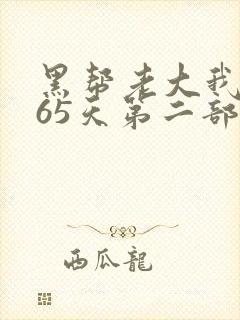 黑帮老大我
65天第二部
西瓜龍